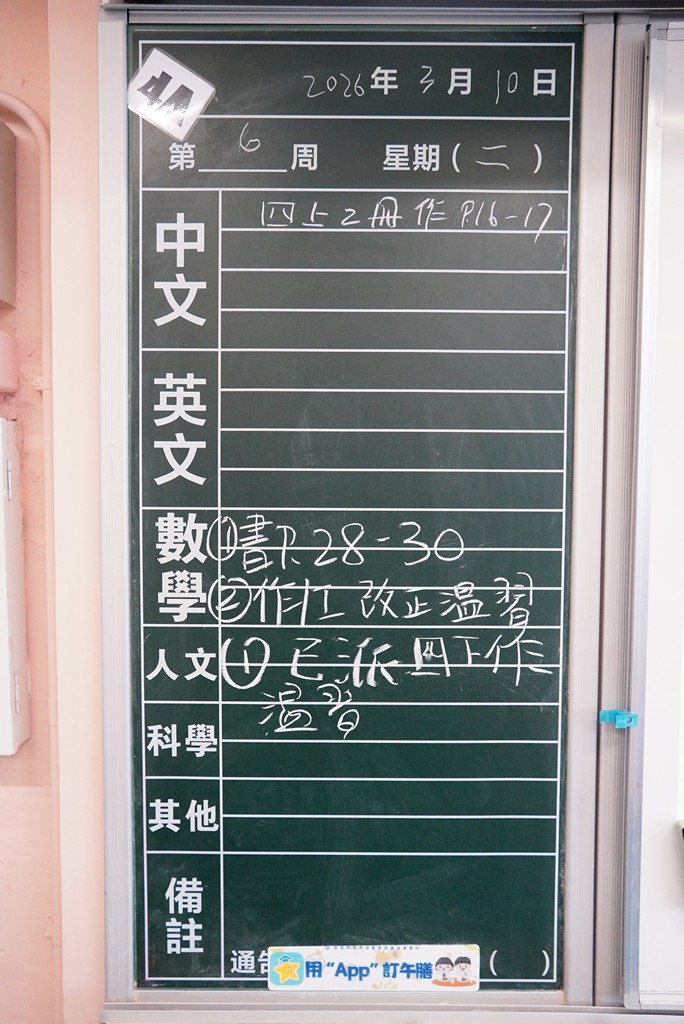 4A
2026年 3月 10日
第 6 周 星期(二)
中文 四上2冊 作 P.16-17
英文
數學 ①書P.28-30
②作工 改正 溫習
人文 ① 已派四下作
溫習
科學
其他
備註
通告
用“App”訂午膳
( )